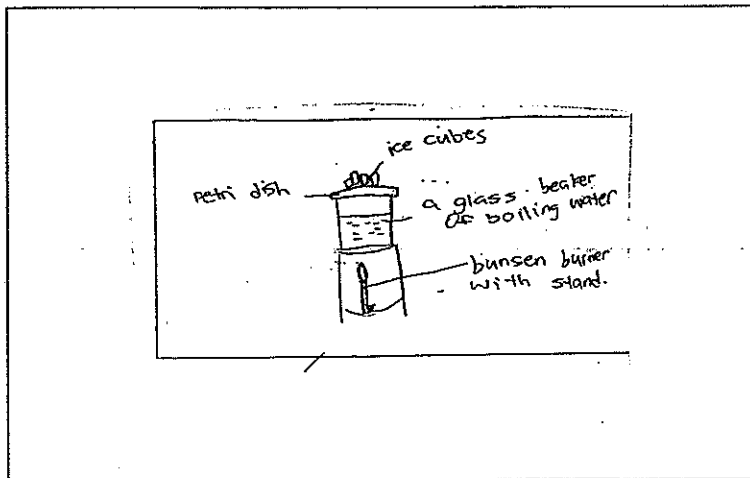 ice cubes
Petri dish
a glass beaker
of boiling water
bunsen burner
with stand.